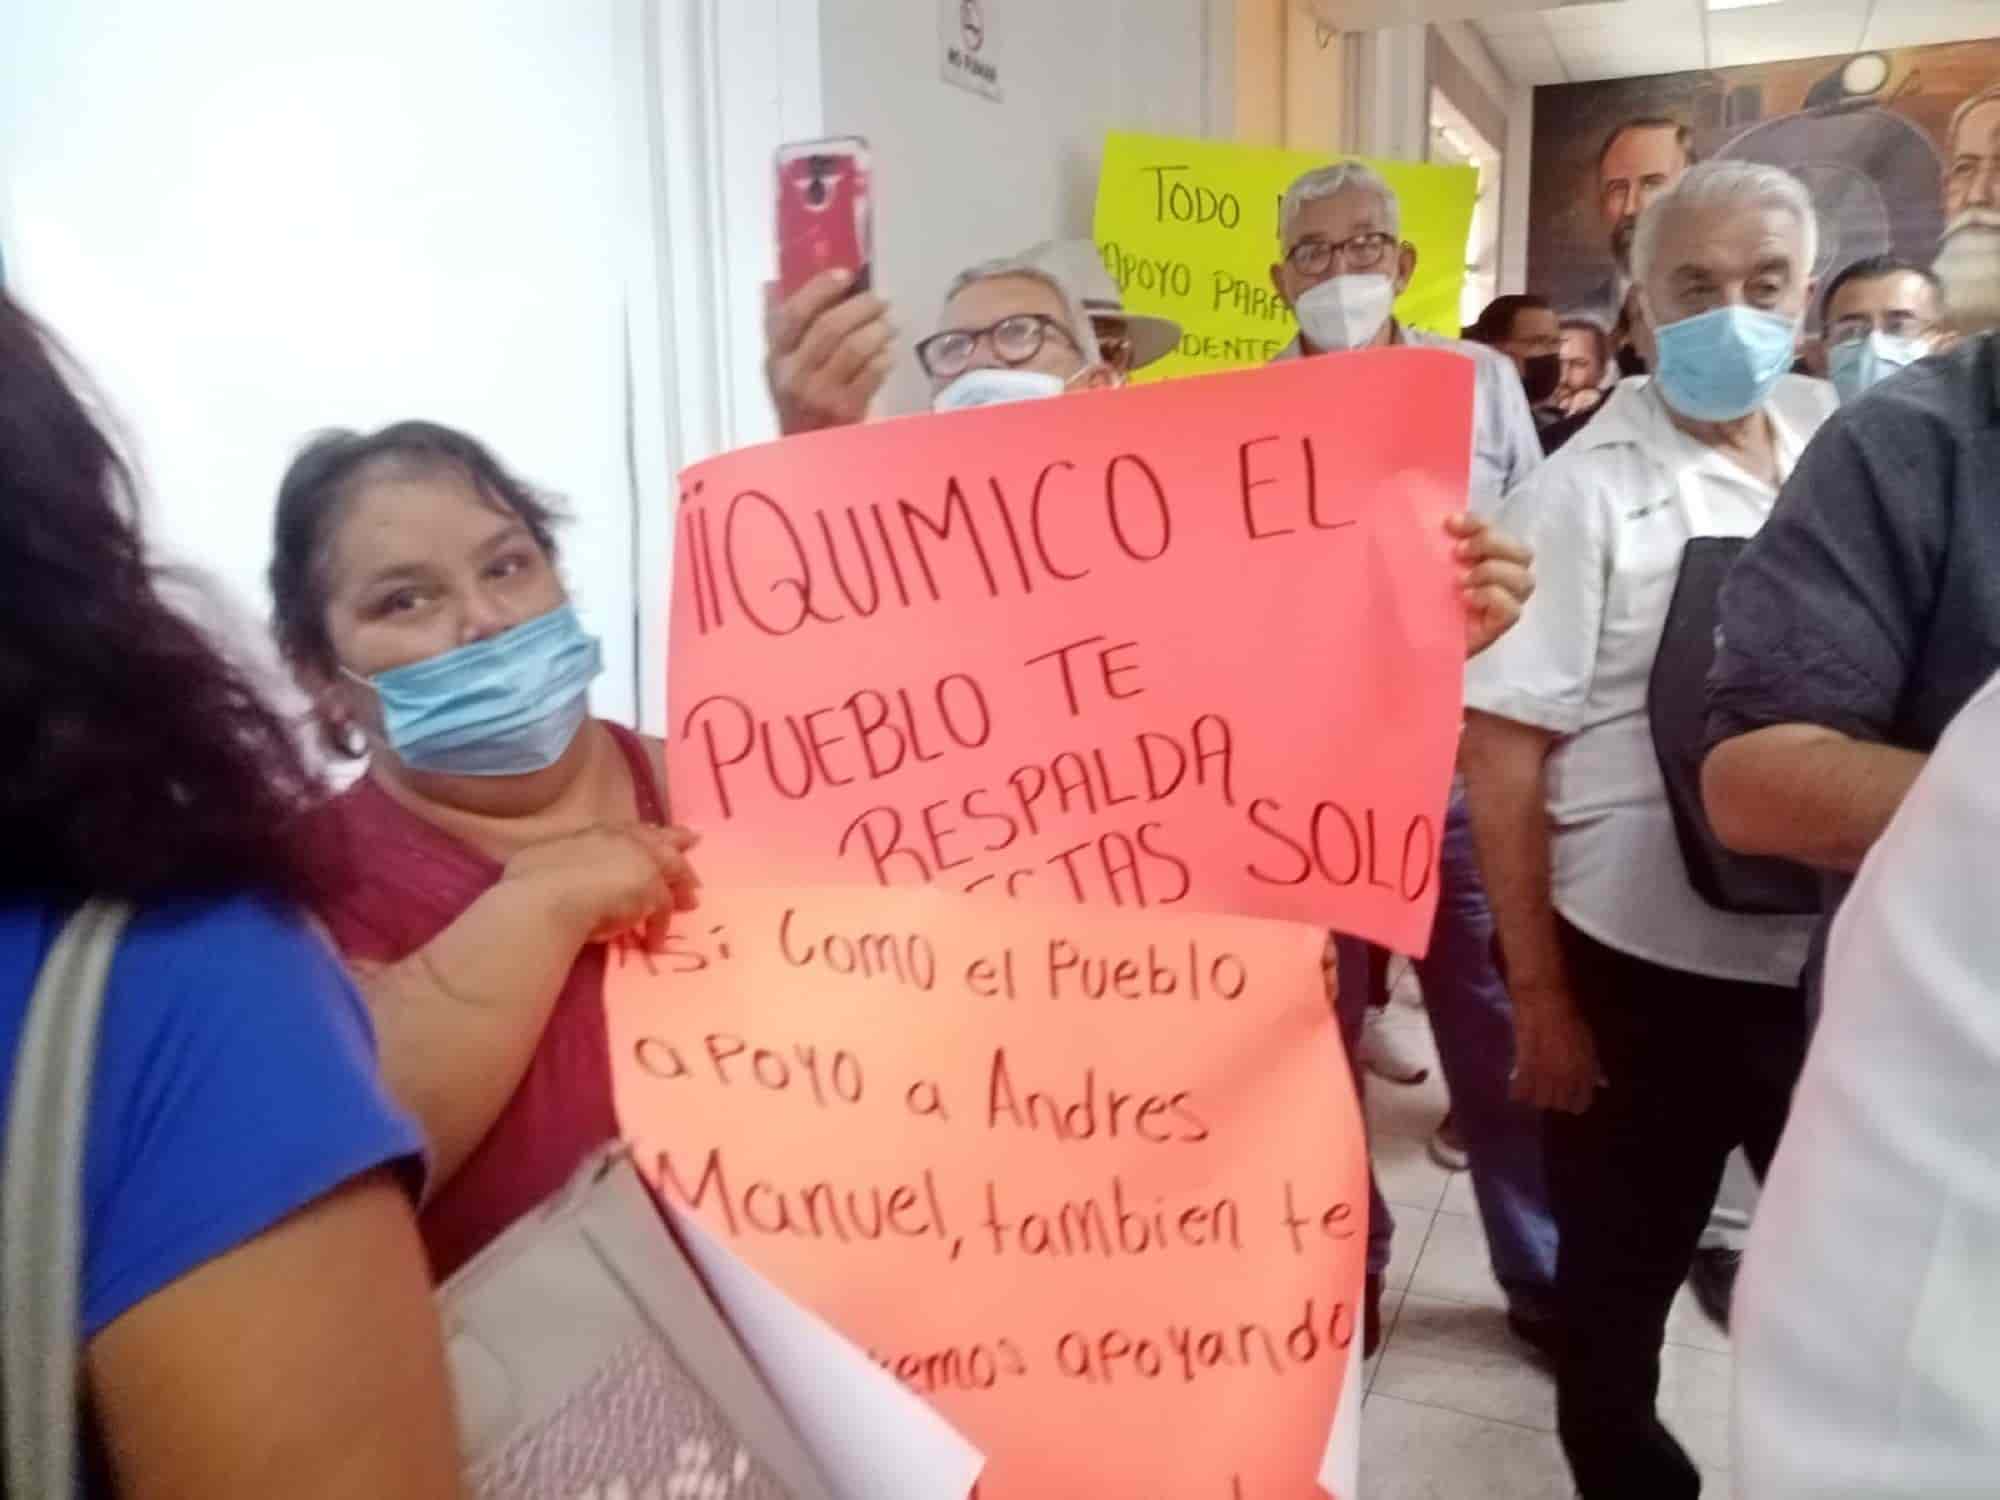 NO FUMAR
TODO
APOYO PARA
IDENTE
¡¡QUIMICO EL
PUEBLO TE
RESPALDA
SOLO
Así Como el Pueblo
apoyo a Andres
Manuel, tambien te
emos apoyando